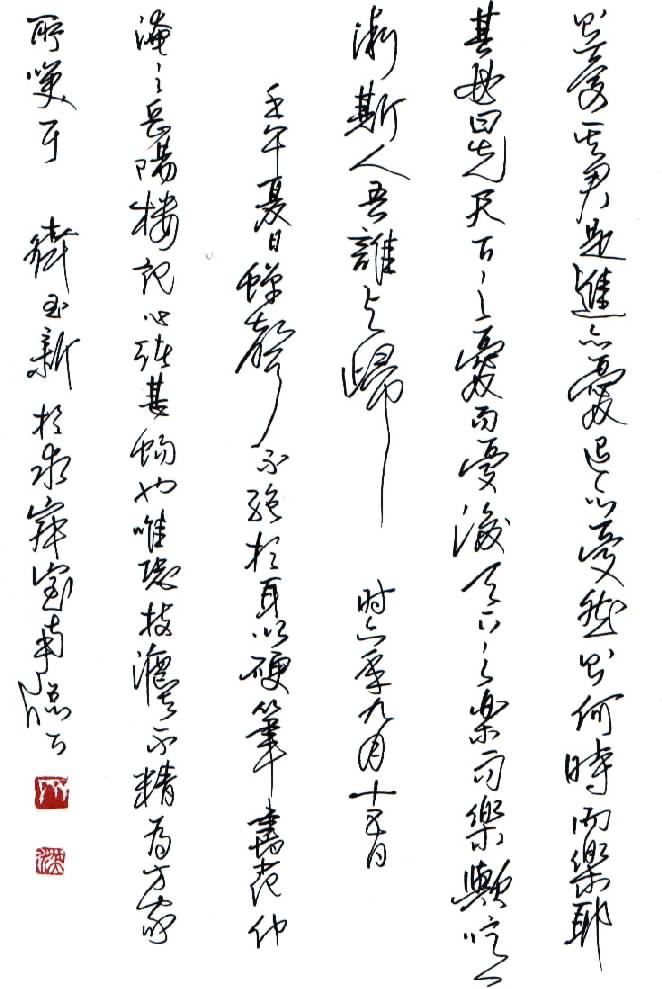 則憂其君是進亦憂退亦憂然則何時而樂耶
其必曰先天下之憂而憂後天下之樂而樂歟噫
微斯人吾誰與歸 時六年九月十五日
壬午夏日蟬聲不絕於耳以硬筆書范仲
淹之岳陽樓記心弦甚暢也唯恐技濃不精為方家
所嘆耳 衛玉新於求寐室南窗下